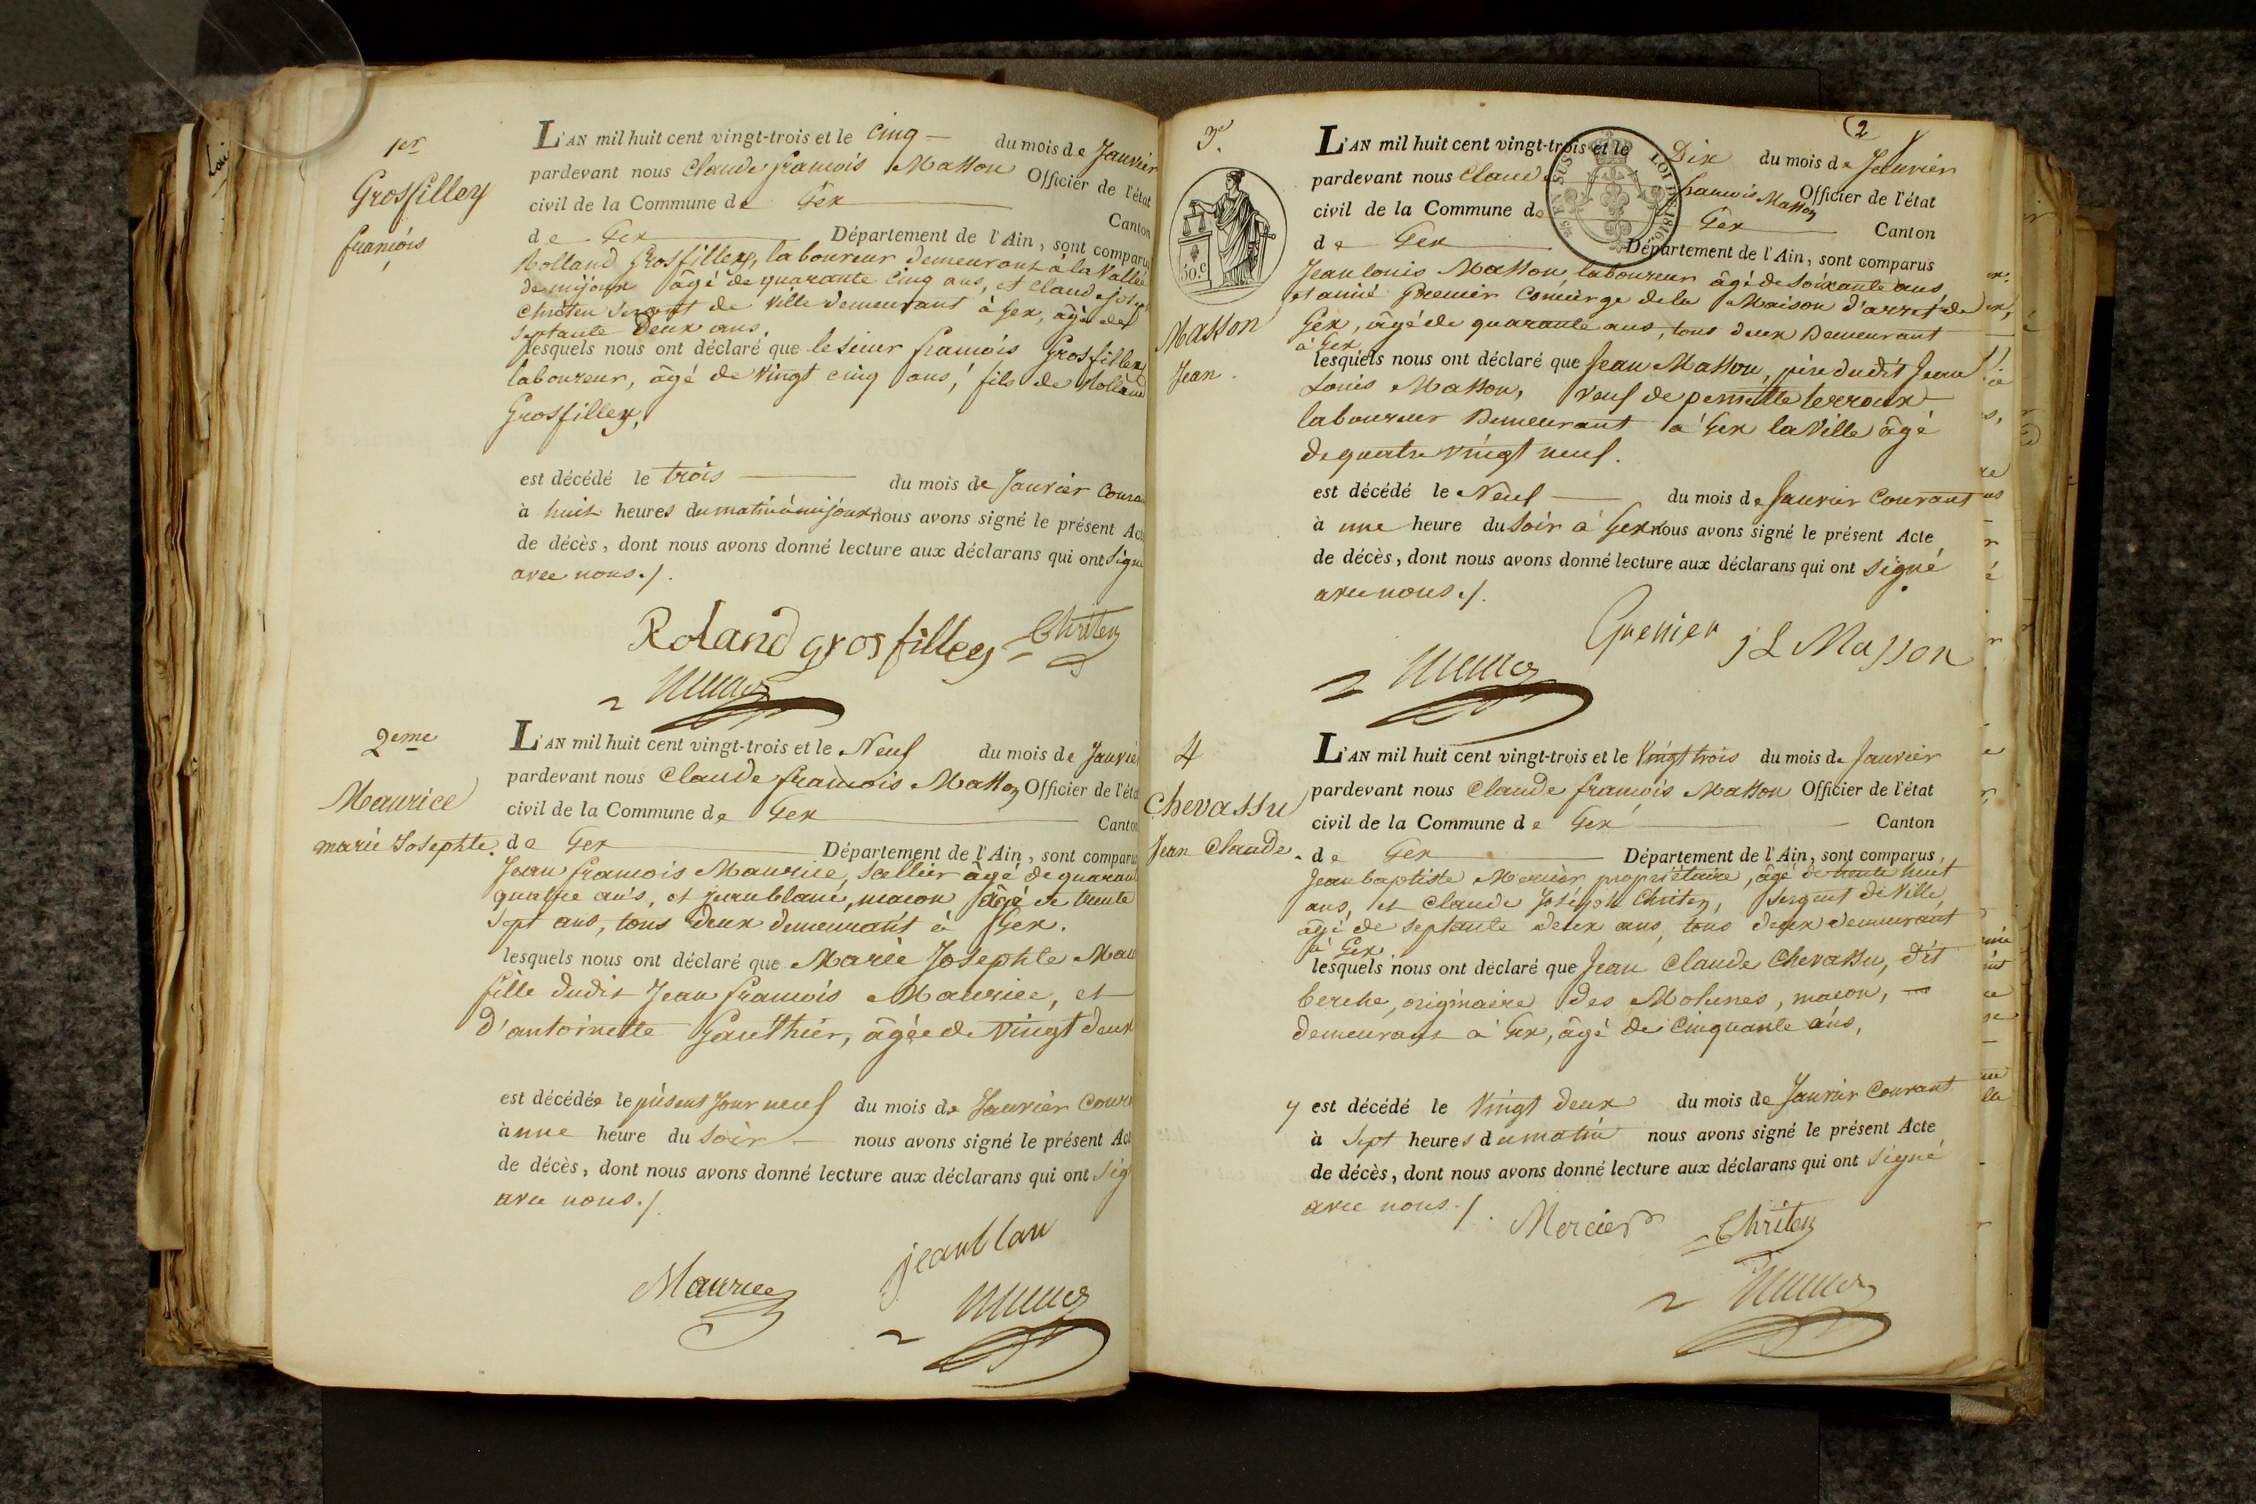 1er
Grosfilley
françois
L'AN mil huit cent vingt-trois et le cinq du mois de Janvier
pardevant nous Claude françois Masson Officier de l'état
civil de la Commune de Gex Canton
de Gex Département de l'Ain, sont comparus
Rolland Grosfilley, laboureur demeurant à la Vallée
de mijoux âgé de quarante cinq ans, et Claude joseph
Chriten Sergent de Ville demeurant à Gex, âgé de
septante deux ans,
lesquels nous ont déclaré que le sieur françois Grosfilley
laboureur, âgé de vingt cinq ans, fils de Rolland
Grosfilley,
est décédé le trois du mois de Janvier coura
à huit heures du matin à mijoux nous avons signé le présent Act
de décès, dont nous avons donné lecture aux déclarans qui ont signé
avec nous ./.
Roland grosfilley Chriten
2eme
Maurice
marie Josephte.
L'AN mil huit cent vingt-trois et le Neuf du mois de Janvier
pardevant nous Claude françois Masson Officier de l'état
civil de la Commune de Gex Canton
de Gex Département de l'Ain, sont comparus
Jean françois Maurice, Sellier âgé de quarante
quatre ans, et jean blanc, macon âgé de trente
sept ans, tous deux demeurant à Gex.
lesquels nous ont déclaré que Marie Josephte Mau
fille dudit Jean françois Maurice, et
d'antoinette Gauthier, âgée de vingt deux
est décédée le présent jour neuf du mois de Janvier Cour
à une heure du soir nous avons signé le présent Act
de décès, dont nous avons donné lecture aux déclarans qui ont sig
avec nous ./.
Maurice jean blan
2
3e
50.c
Masson
Jean.
LOI DE 1816.
L'AN mil huit cent vingt-trois et le Dix du mois de Janvier
pardevant nous Claude francois Masson Officier de l'état
civil de la Commune de Gex Canton
de Gex Département de l'Ain, sont comparus
Jean louis Masson laboureur âgé de soixante ans
et amié Grenier Concierge de la Maison d'arrêt de
Gex, âgé de quarante ans, tous deux Demeurant
à Gex
lesquels nous ont déclaré que Jean Masson, père dudit Jean
Louis Masson, Veuf de pernette terroux
laboureur Demeurant à Gex la Ville âgé
de quatre vingt neuf.
est décédé le Neuf du mois de Janvier Courant
à une heure du soir à Gex nous avons signé le présent Acte
de décès, dont nous avons donné lecture aux déclarans qui ont signé
avec nous ./.
Grenier j L Masson
4
Chevassu
Jean Claude.
L'AN mil huit cent vingt-trois et le Vingt trois du mois de Janvier
pardevant nous Claude françois Masson Officier de l'état
civil de la Commune de Gex Canton
de Gex Département de l'Ain, sont comparus,
Jean baptiste Mercier propriétaire, âgé de trente huit
ans, et Claude Joseph Chriten, Sergent de Ville,
âgé de septante deux ans, tous deux demeurant
à Gex.
lesquels nous ont déclaré que Jean Claude Chevassu, dit
berche, originaire des Molunes, macon,
demeurant à Gex, âgé de Cinquante ans,
est décédé le Vingt deux du mois de Janvier Courant
à sept heures du matin nous avons signé le présent Acte
de décès, dont nous avons donné lecture aux déclarans qui ont signé
avec nous ./.
Mercier Chriten